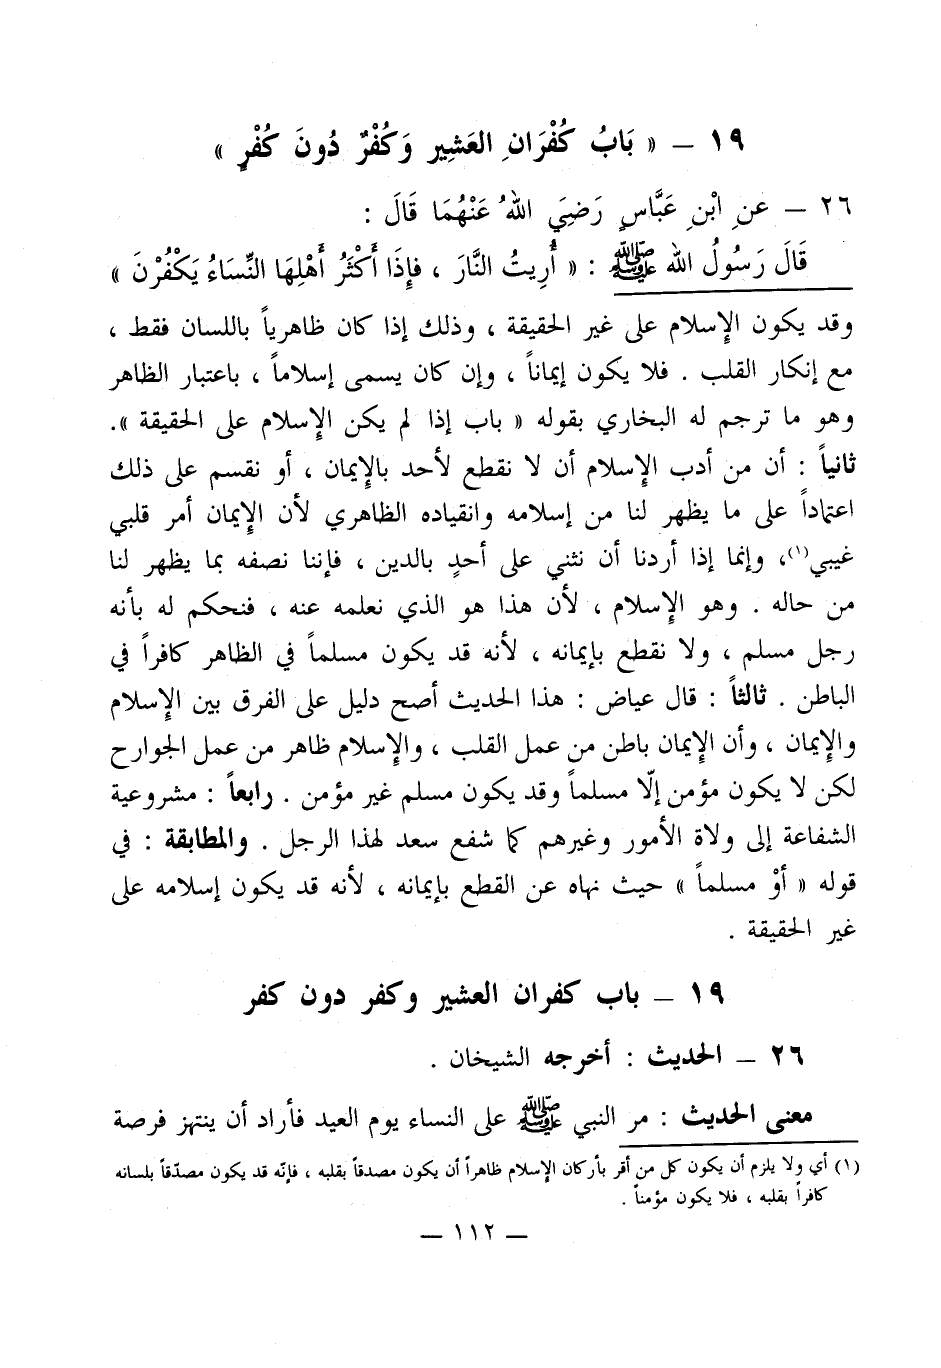 ١٩ – « بَابُ كُفْرَانِ العَشِيرِ وَكُفْرٌ دُونَ كُفْرٍ »
٢٦ – عنِ ابْنِ عَبَّاسٍ رَضِيَ اللهُ عَنْهُمَا قَالَ :
قَالَ رَسُولُ الله ﷺ : « أُرِيتُ النَّارَ ، فإذَا أَكْثَرُ أَهْلِهَا النِّسَاءُ يَكْفُرْنَ »
وقد يكون الإسلام على غير الحقيقة ، وذلك إذا كان ظاهرياً باللسان فقط ،
مع إنكار القلب . فلا يكون إيماناً ، وإن كان يسمى إسلاماً ، باعتبار الظاهر
وهو ما ترجم له البخاري بقوله « باب إذا لم يكن الإسلام على الحقيقة ».
ثانياً : أن من أدب الإسلام أن لا نقطع لأحد بالإيمان ، أو نقسم على ذلك
اعتماداً على ما يظهر لنا من إسلامه وانقياده الظاهري لأن الإيمان أمر قلبي
غيبي(١)، وإنما إذا أردنا أن نثني على أحدٍ بالدين ، فإننا نصفه بما يظهر لنا
من حاله . وهو الإسلام ، لأن هذا هو الذي نعلمه عنه ، فنحكم له بأنه
رجل مسلم ، ولا نقطع بإيمانه ، لأنه قد يكون مسلماً في الظاهر كافراً في
الباطن . ثالثاً : قال عياض : هذا الحديث أصح دليل على الفرق بين الإسلام
والإيمان ، وأن الإيمان باطن من عمل القلب ، والإسلام ظاهر من عمل الجوارح
لكن لا يكون مؤمن إلّا مسلماً وقد يكون مسلم غير مؤمن . رابعاً : مشروعية
الشفاعة إلى ولاة الأمور وغيرهم كما شفع سعد لهذا الرجل . والمطابقة : في
قوله « أوْ مسلماً » حيث نهاه عن القطع بإيمانه ، لأنه قد يكون إسلامه على
غير الحقيقة .
١٩ – باب كفران العشير وكفر دون كفر
٢٦ – الحديث : أخرجه الشيخان .
معنى الحديث : مر النبي ﷺ على النساء يوم العيد فأراد أن ينتهز فرصة
(١) أي ولا يلزم أن يكون كل من أقر بأركان الإسلام ظاهراً أن يكون مصدقاً بقلبه ، فإنّه قد يكون مصدّقاً بلسانه
كافراً بقلبه ، فلا يكون مؤمناً .
– ١١٢ –